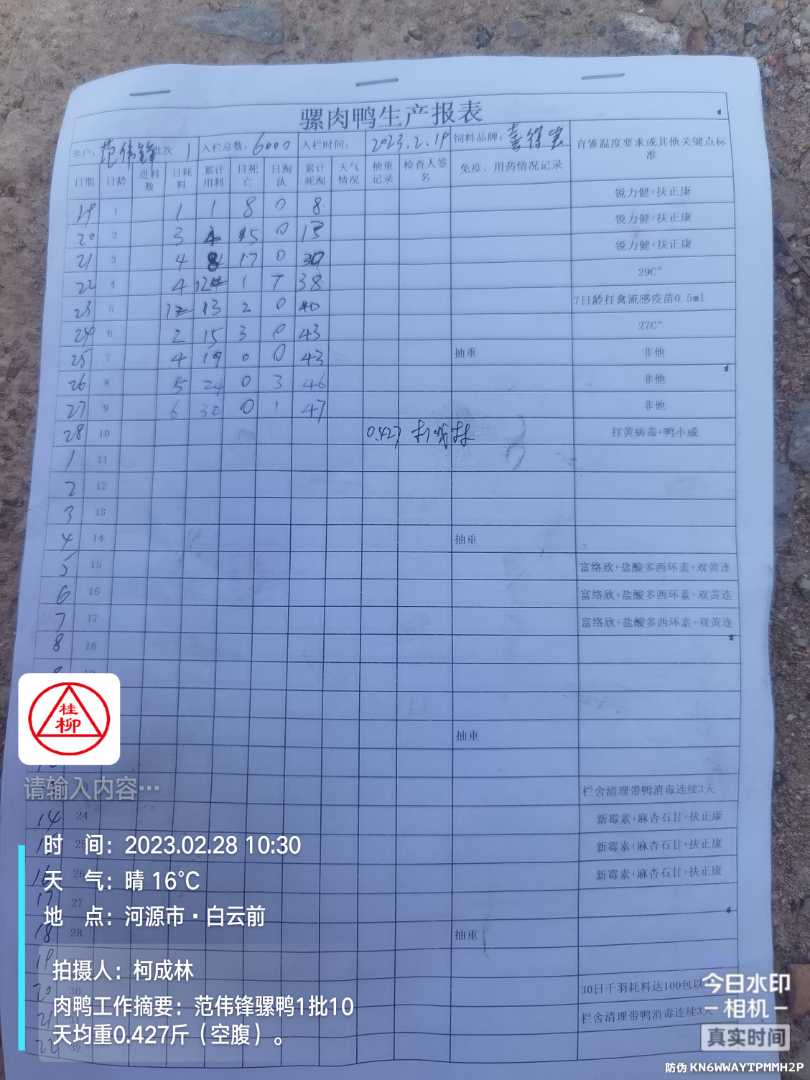 骡肉鸭生产报表
养户: 范伟锋 批次 1 入栏总数: 6000 入栏时间: 2023.2.19 饲料品牌: 育雏温度要求或其他关键点标准
日期 日龄 进料数 日耗料 累计用料 日死亡 日淘汰 累计死淘 天气情况 抽重记录 检查人签名 免疫、用药情况记录
19 1 1 1 8 0 8 锐力健+扶正康
20 2 3 4 5 0 13 锐力健+扶正康
21 3 4 8 17 0 30 锐力健+扶正康
22 4 4 12 1 7 38 29C°
23 5 13 2 0 40 7日龄打禽流感疫苗0.5ml
24 6 2 15 3 0 43 27C°
25 7 4 19 0 0 43 抽重 非他
26 8 5 24 0 3 46 非他
27 9 6 30 0 1 47 非他
28 10 0.427 打黄病毒+鸭小威
1 11
2 12
3 13
4 14 抽重
5 15 富络欣+盐酸多西环素+双黄连
6 16 富络欣+盐酸多西环素+双黄连
7 17 富络欣+盐酸多西环素+双黄连
8 18
桂柳
抽重
请输入内容…
栏舍清理带鸭消毒连续3天
14 24 新霉素+麻杏石甘+扶正康
25 新霉素+麻杏石甘+扶正康
26 新霉素+麻杏石甘+扶正康
17 27
18 28 抽重
19
20 30 30日千羽耗料达100包以
21 栏舍清理带鸭消毒连续3天
22
时 间: 2023.02.28 10:30
天 气: 晴 16℃
地 点: 河源市·白云前
拍摄人: 柯成林
肉鸭工作摘要: 范伟锋骡鸭1批10
天均重0.427斤（空腹）。
今日水印
-相机-
真实时间
防伪 KN6WWAYTPMMH2P